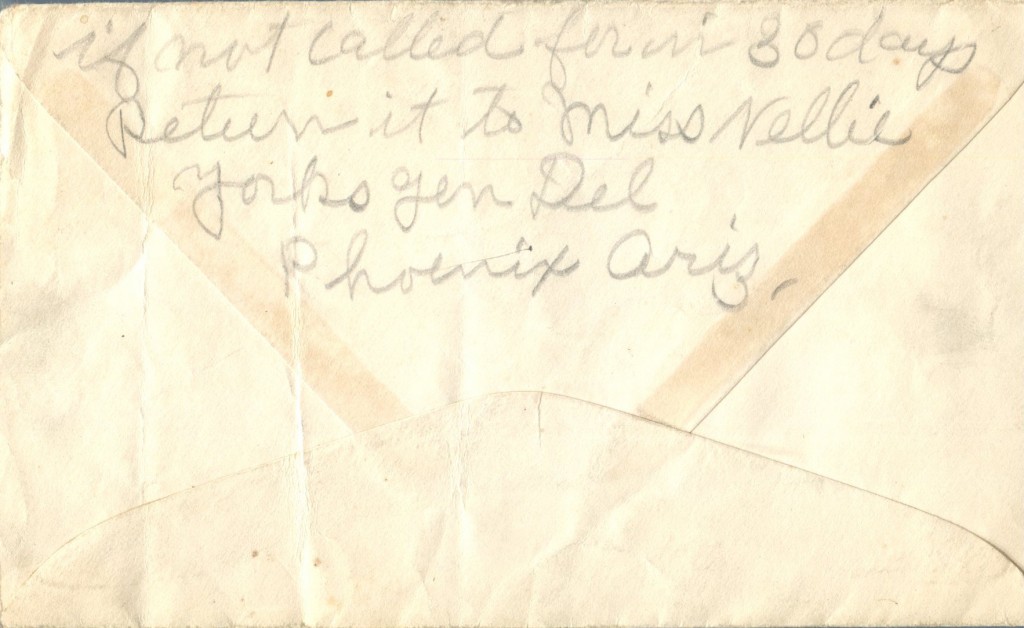 if not called for in 30 days
Return it to Miss Nellie
Yorks Gen Del
Phoenix Ariz.